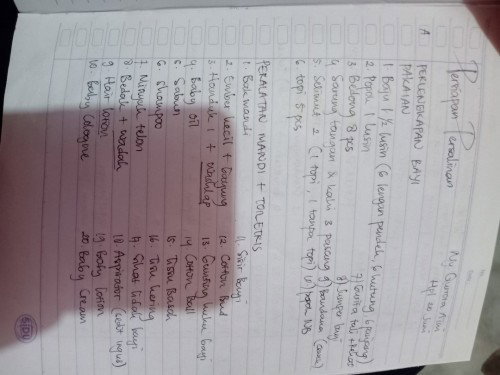 Persiapan Persalinan
Ny Qurrota A'ini
Hpl 20 Juni
A PERLENGKAPAN BAYI
PAKAIAN
1. Baju 1/2 lusin (6 lengan pendek, 6 kutung, 6 panjang)
2. Popok 1 lusin
3. Bedong 8 pcs
4. Sarung tangan & kaki 3 pasang
5. Selimut 2 (1 topi, 1 tanpa topi)
6. topi 5 pcs
7) Gurita tali + rekat
8) Jumper bayi
9) Bandana (cewe)
10) popok NB
PERALATAN MANDI + TOILETRIS
1. Bak mandi
2. Ember kecil + gayung
3. Handuk 1 + washlap
4. Baby oil
5. Sabun
6. Shampoo
7. Minyak telon
8. Bedak + wadah
9. Hair lotion
10. Baby Cologne
11. Sisir bayi
12. Cotton Bud
13. Gunting kuku bayi
14. Cotton Ball
15. Tissu Basah
16. Tissu kering
17. Sikat lidah bayi
18. Aspirator (sedot ingus)
19. Baby lotion
20. Baby Cream
SIDU